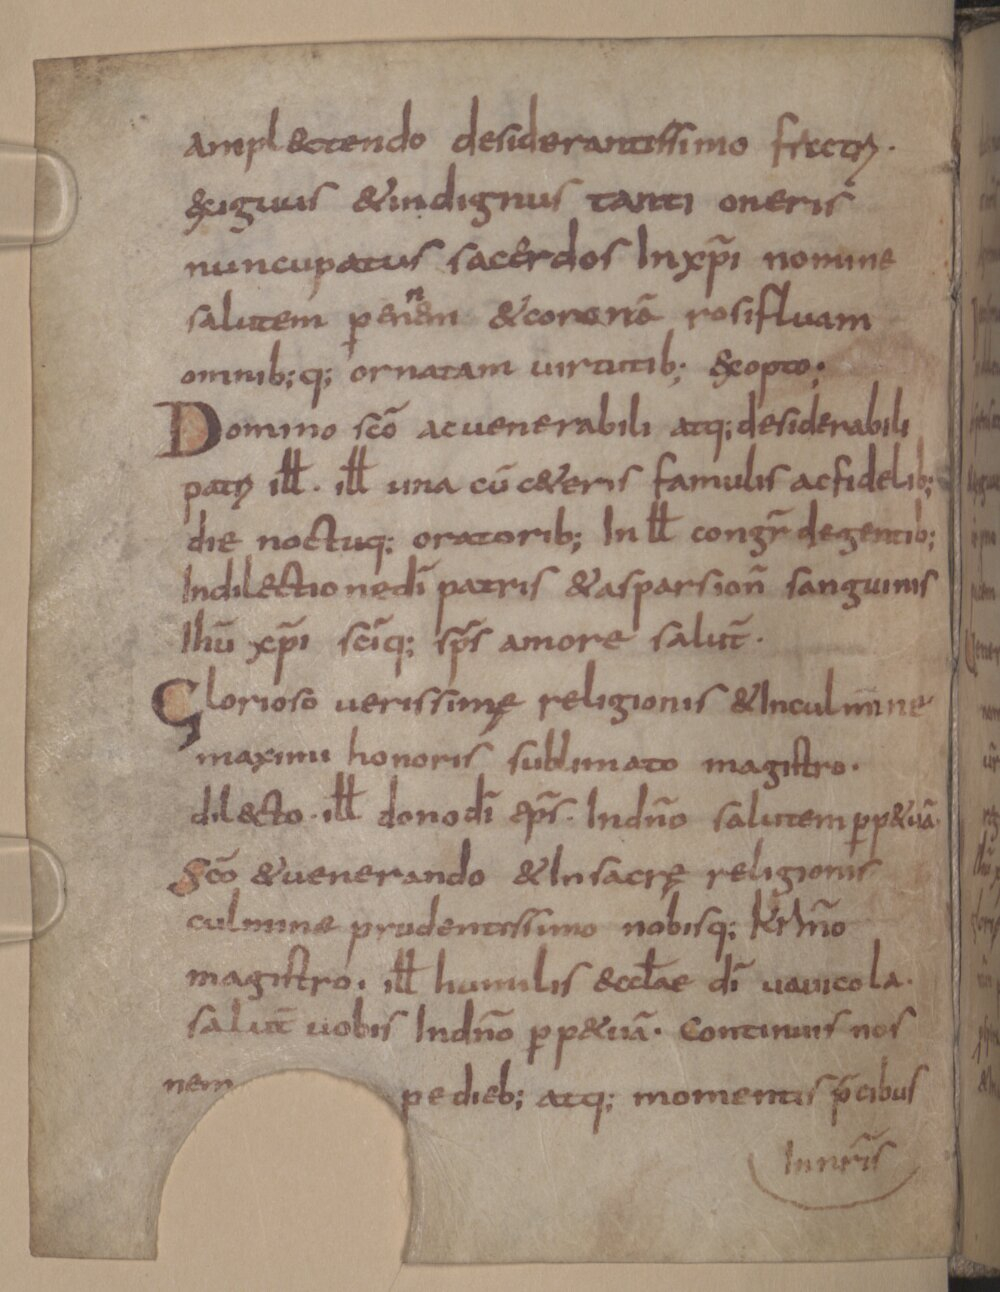 ampl&ctendo desiderantissimo frī
&xiguus &indignus tanti oneris
nuncupatus sacerdos Inxp̄i nomine
salutem perennem &coronā rosifluam
omnib;q; ornatam uirtutib; &xopto;
Domino sc̄o acuenerabili atq; desiderabili
patri ill̄. ill̄ una cū c&eris famulis acfidelib;
die noctuq; oratorib; In ll̄ congr̄ degentib;
Indil&ctione dī patris &asparsion̄ sanguinis
Ihū xp̄i sc̄iq; sp̄s amore salut̄.
Glorioso uerissimę religionis &Inculmine
maximi honoris sublimato magistro.
dil&cto. ill̄ dono dī ep̄s. Indn̄o salutem perp&uā.
Sc̄o &uenerando &Insacrę religionis
culmine prudentissimo nobisq; kr̄mo
magistro. ill̄ humilis &ccl̄ae dī uauicola.
salut̄ uobis Indn̄o perp&uā. Continuis nos
nem pe dieb; atq; momentis p̄cibus
Innr̄is